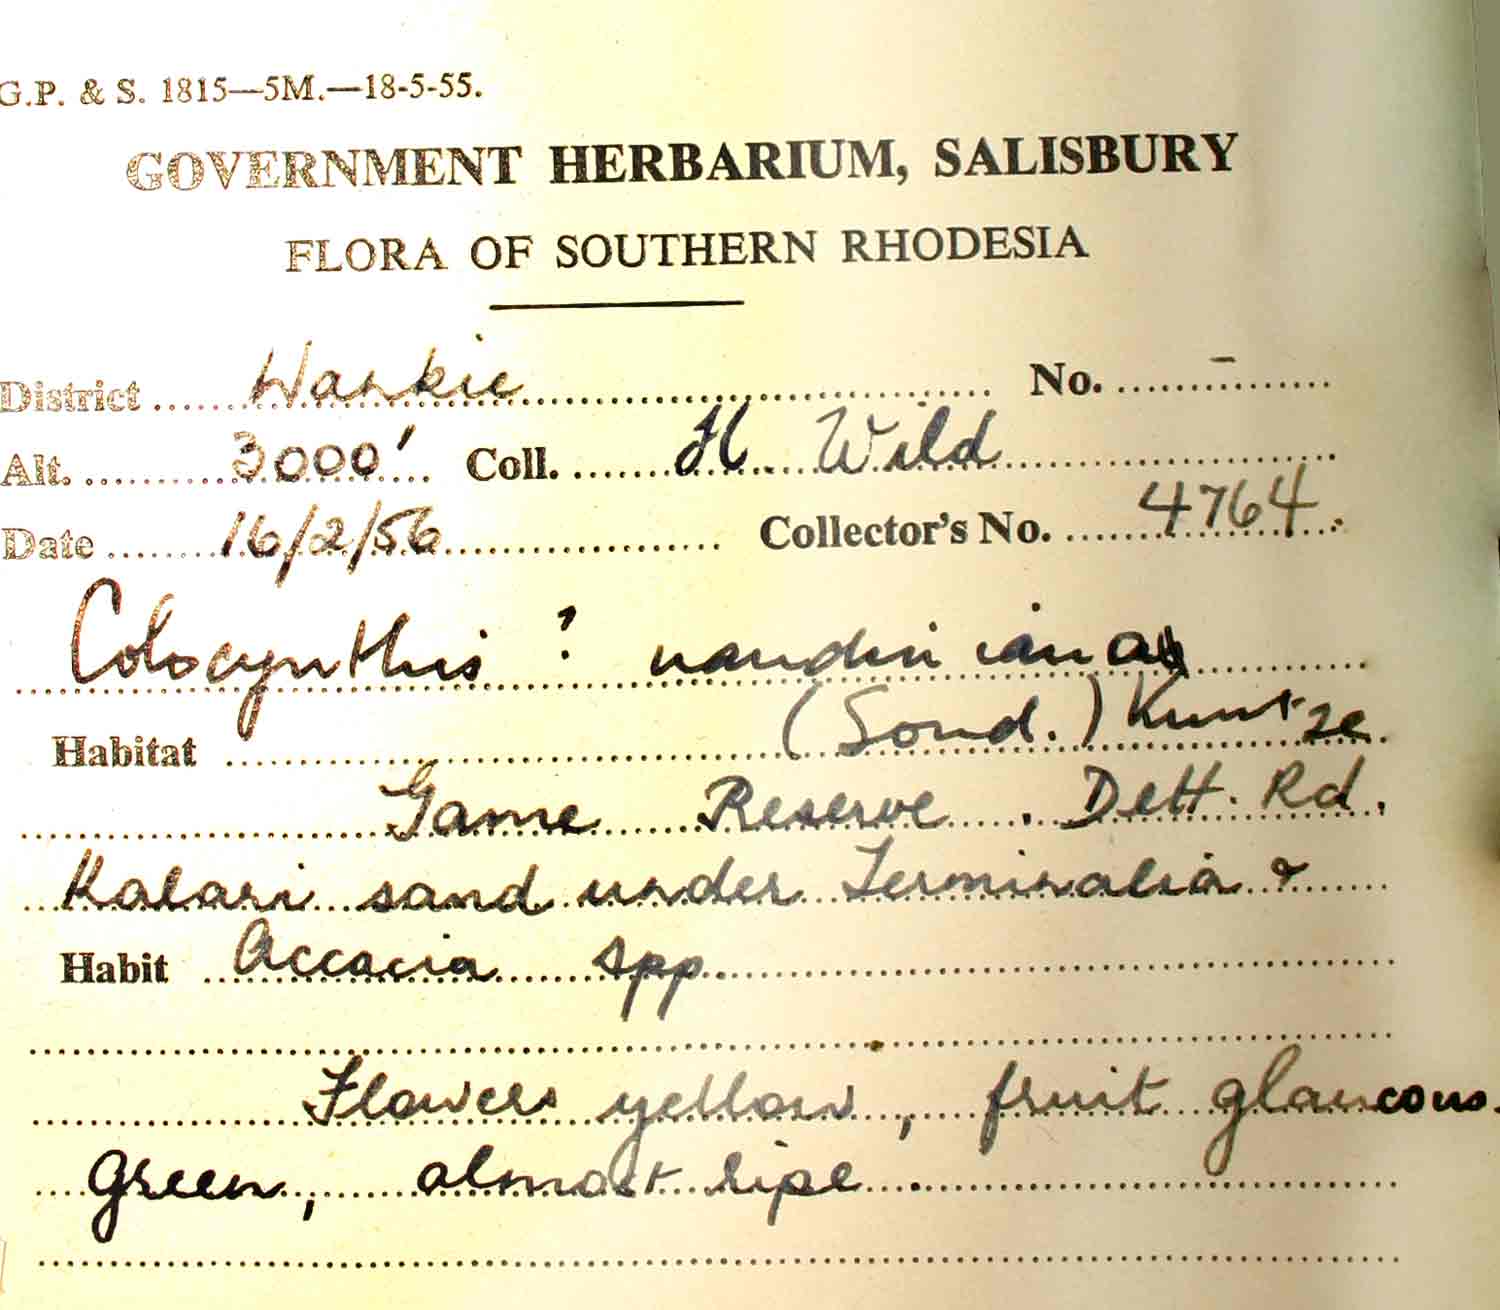 G.P. & S. 1815—5M.—18-5-55.
GOVERNMENT HERBARIUM, SALISBURY
FLORA OF SOUTHERN RHODESIA
District Wankie No. –
Alt. 3000' Coll. H. Wild
Date 16/2/56 Collector's No. 4764
Colocynthis ? naudiniana
(Sond.) Kuntze
Habitat
Game Reserve. Dett. Rd.
Kalari sand under Terminalia &
Habit Accacia spp.
Flowers yellow, fruit glaucous
green, almost ripe.